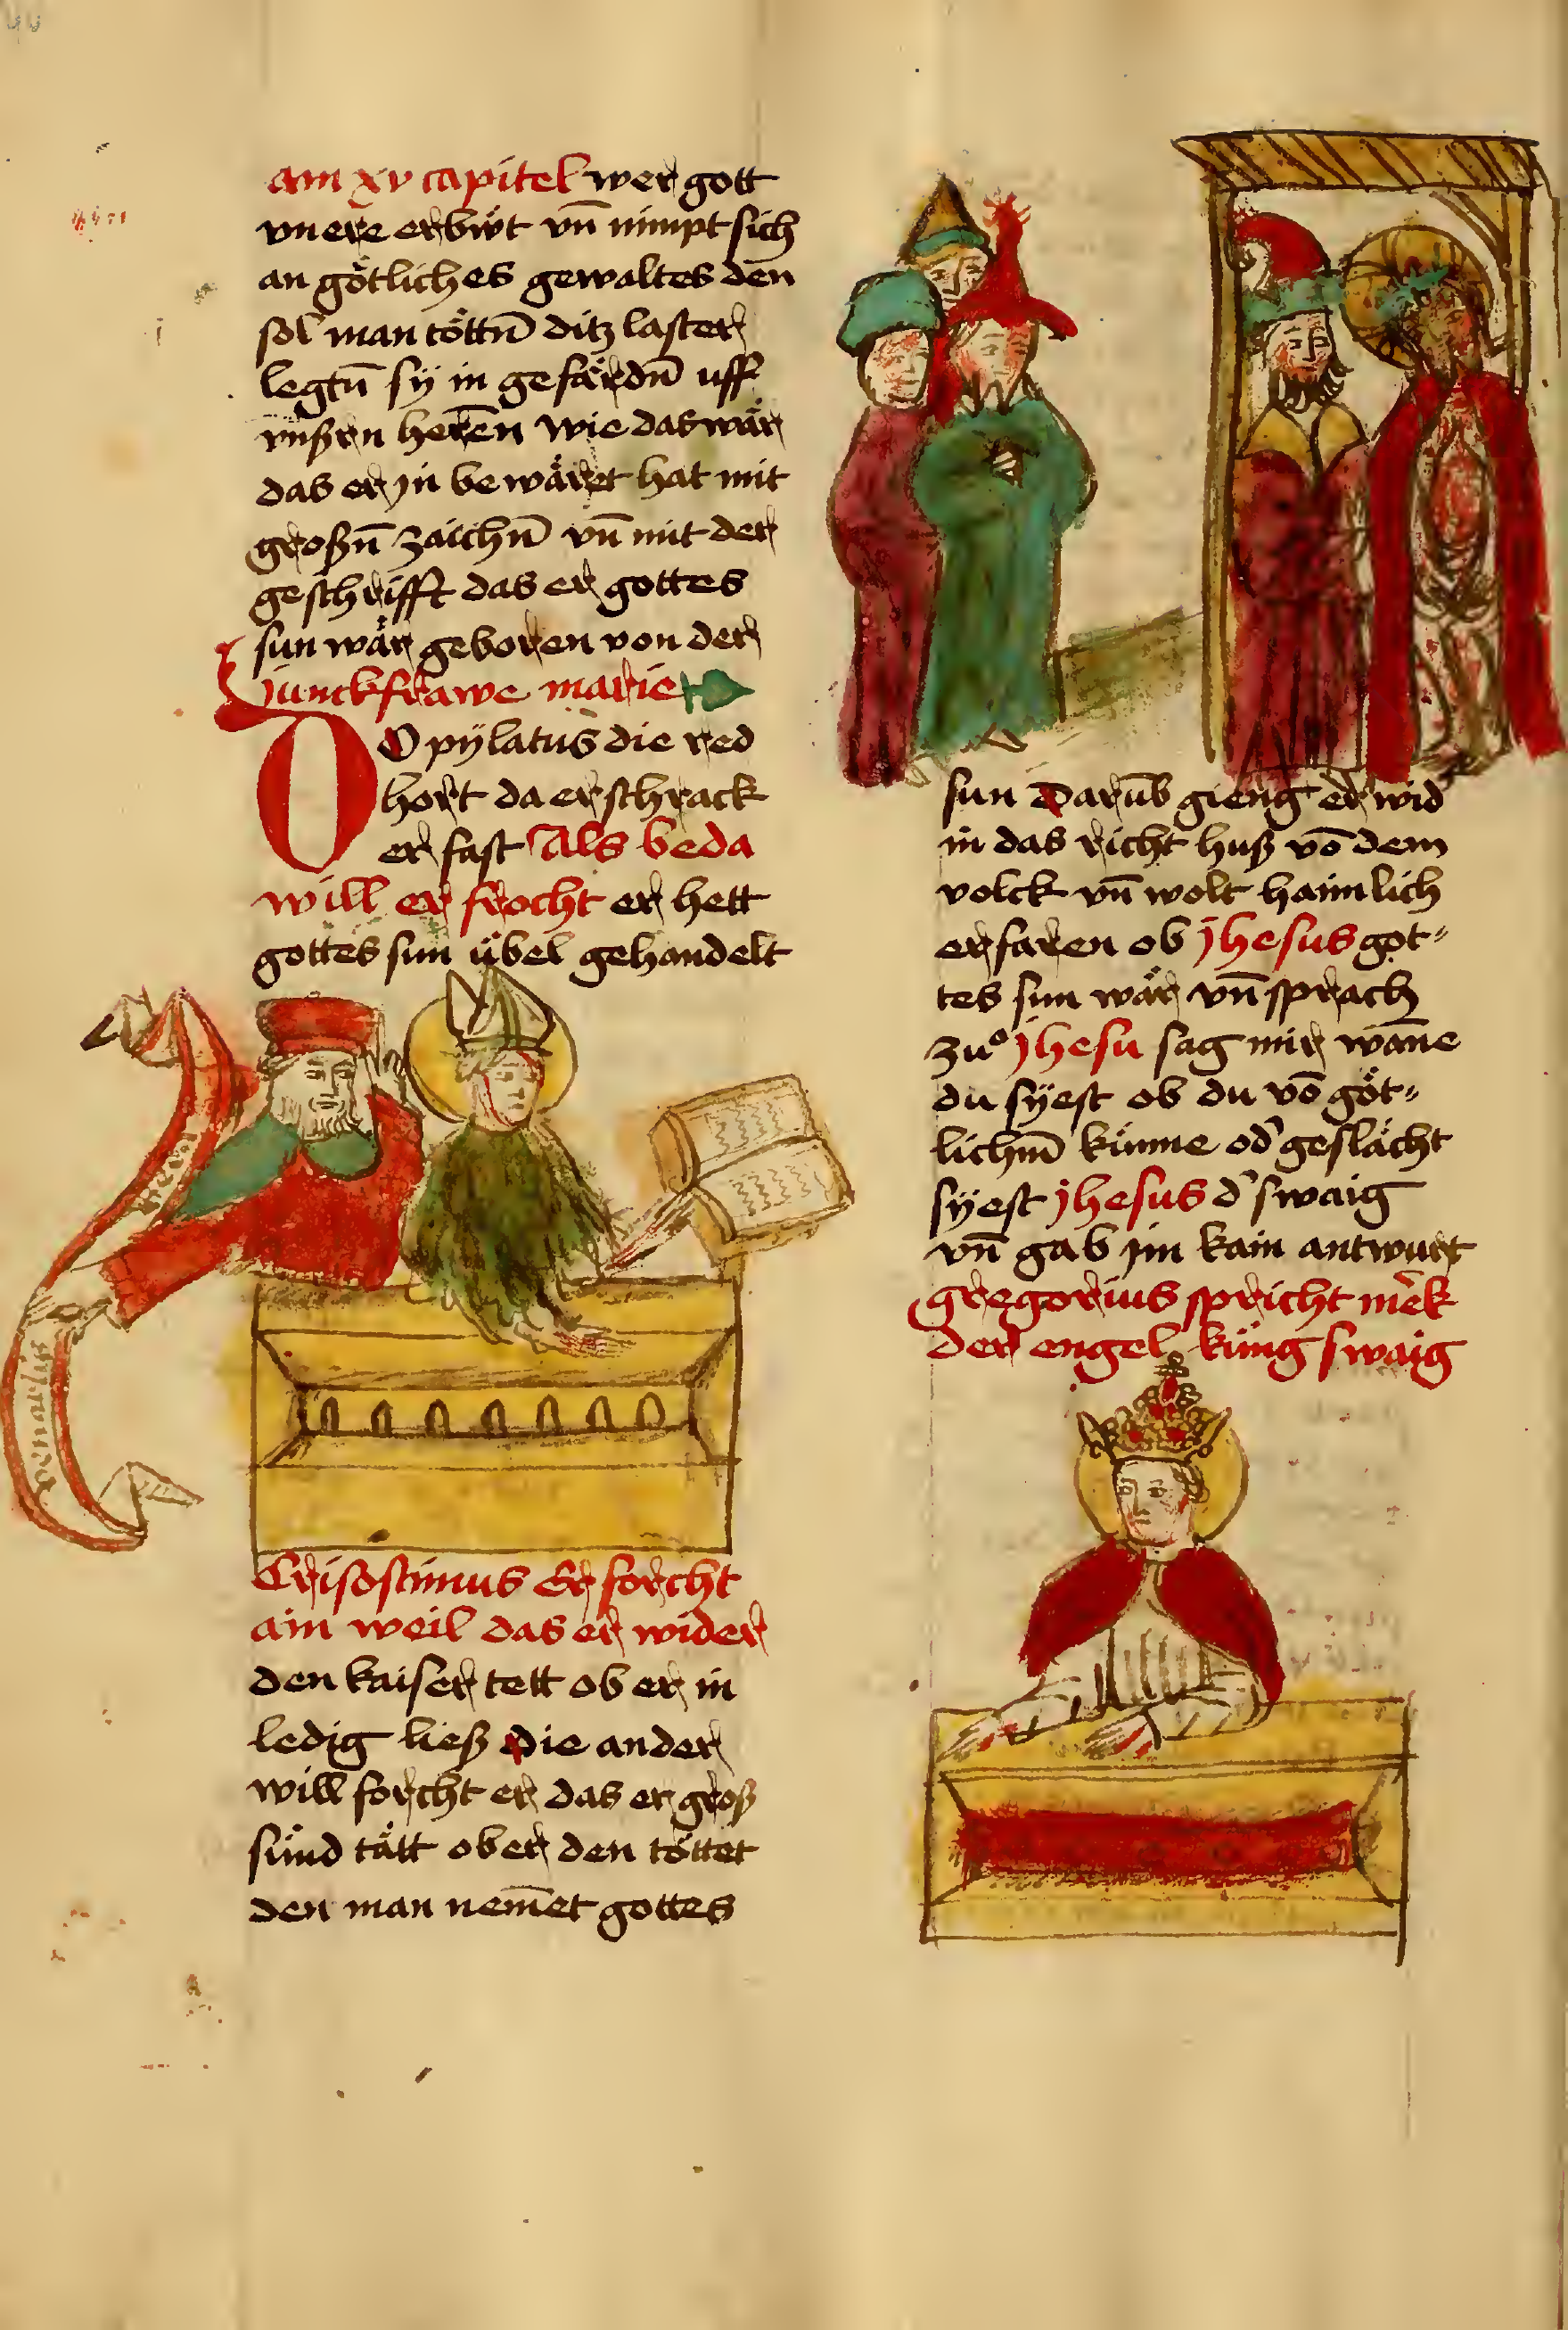 am xv capitel wer gott
vnere erbüt vn̄ nimpt sich
an götliches gewaltes den
sol man töttn̄ ditz laster
legtn̄ sÿ in gefärdn̄ uff
vnßrn herēn wie das wär
das er jn bewäret hat mit
großn̄ zaichn̄ vn̄ mit der
geschrifft das er gottes
sun wär geboren von der
junckfrawe marie
DO pÿlatus die red
hort da erschrack
er fast Als beda
will er frocht er hett
gottes sun übel gehandelt
beda
Crisostimus Er forcht
ain weil das er wider
den kaiser tett ob er in
ledig ließ Die ander
will forcht er das er groß
sünd tätt ob er den töttet
den man nem̄et gottes
sun Darūb gieng er wid
in das richt huß vō dem
volck vn̄ wolt haimlich
erfaren ob jhesus got-
tes sun wär vn̄ sprach
zuͦ jhesu sag mir wan̄e
du sÿest ob du vō göt-
lichm̄ künne od' geslächt
sÿest jhesus d' swaig
vn̄ gab jm kain antwurt
gregorius spricht merk
der engel küng swaig